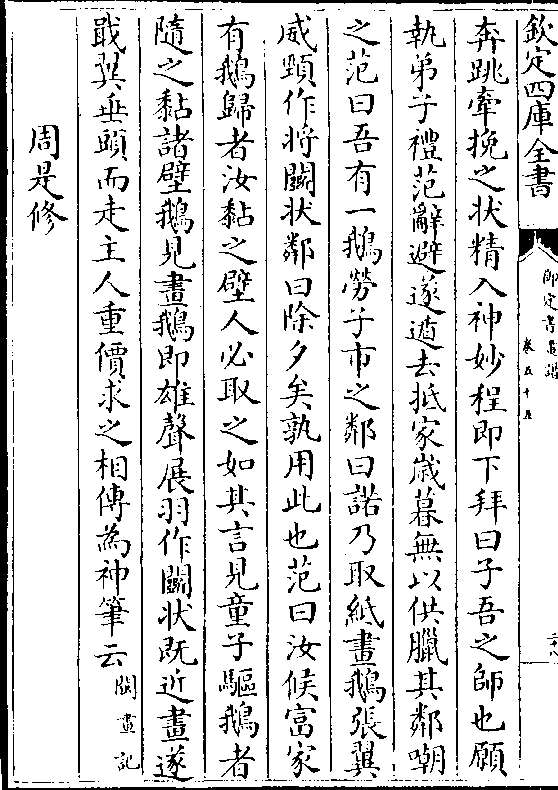 欽定四庫全書
御定書畫譜
卷五十五
奔跳牽挽之状精入神妙程即下拜曰子吾之師也願
執弟子禮范辭避遂遁去抵家歲暮無以供臘其鄰嘲
之范曰吾有一鵝勞子市之鄰曰諾乃取紙畫鵝張翼
威頸作將鬭状鄰曰除夕矣孰用此也范曰汝候富家
有鵝歸者汝黏之壁人必取之如其言見童子驅鵝者
隨之黏諸壁鵝見畫鵝即雄聲展羽作鬭状既近畫遂
戢翼垂頭而走主人重價求之相傳為神筆云閩畫記
周是修